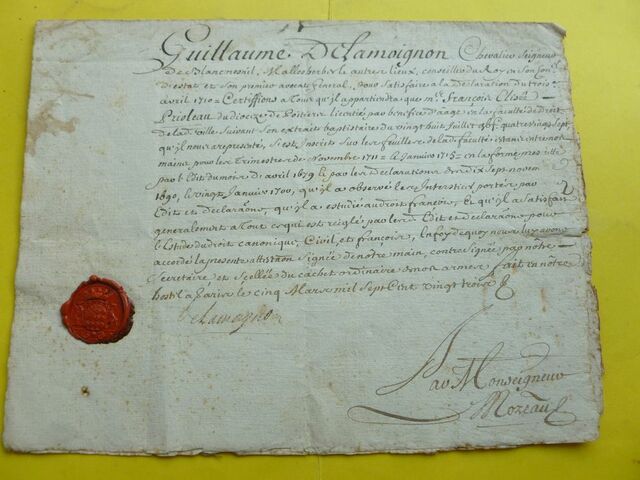 Guillaume Delamoignon Chevalier Seigneur
de Blancmesnil, Mallesherbes & autres Lieux, Conseiller du Roy en son Con.el
d'estat et son premier avocat general, pour satisfaire a la Declaration du trois
avril 1710 = Certiffions a tous qu'il appartiendra que m.e François Elisée
Prioleau du dioceze de Poitiers licentié par benefice d'aage en la faculté de Droit
de lad. Ville suivant son extrait baptistaire du vingt huit Juillet
qu'il nous a representé, s'est Inscrit sur les feuilles de lad. faculté estans entre nos
mains pour les Trimestres de Novembre 1711 = & Janvier = en la forme
par l'Edit du mois d'avril 1679 & par les Declarations des dix sept novem.
1690, le vingt Janvier 1700, qu'il a observé les Interstices portés par
Edits et declarãons, qu'il a estudié au droit françois, & qu'il a satisfait
generalement a tout ce qui est reglé par les d. Edit et declarãons pour
l'Estude du droit canonique, Civil, et françois, En foy de quoy nous luy avons
accordé la presente attestãon signée de nôtre main, contresignée par nôtre
Secretaire et scellée du cachet ordinaire de nos armes fait en nôtre
hostel a Paris le cinq Mars mil sept Cent vingt trois
Delamoignon
Par Monseigneur
Mozeau